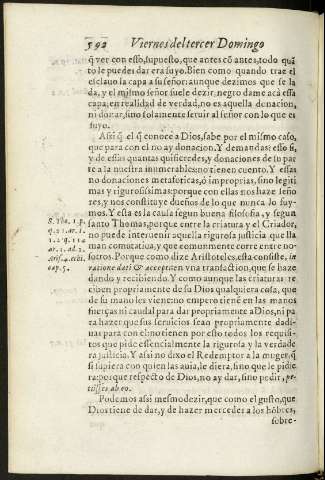 592 Viernes del tercer Domingo
q̃ ver con esso, supuesto, que antes cõ antes, todo quã
to le puedes dar era suyo. Bien como quando trae el
esclauo la capa a su señor: aunque dezimos que se la
da, y el mismo señor suele dezir, negro dame acà essa
capa, en realidad de verdad, no es aquella donacion,
ni donar, sino solamente seruir al señor con lo que es
suyo.
Assi q̃ el q̃ conoce a Dios, sabe por el mismo caso,
que para con el no ay donacion. Y demandas: esso si,
y de essas quantas quisieredes, y donaciones de su par
te a la nuestra inumerables: no tienen cuento. Y essas
no donaciones metaforicas, ò improprias, sino legiti
mas y rigurosissimas: porque con ellas nos haze seño
res, y nos constituye dueños de lo que nunca lo fuy-
mos. Y esta es la causa segun buena filosofia, y segun
santo Thomas, porque entre la criatura y el Criador,
no puede interuenir aquella rigurosa justicia que lla
man comutatiua, y que comunmente corre entre no-
sotros. Porque como dize Aristoteles, esta consiste, in
ratione dati & accepti: en vna transaccion, que se haze
dando y recibiendo. Y como aunque las criaturas re
ciben propriamente de su Dios qualquiera cosa, que
de su mano les viene: no empero tiene en las manos
fuerças ni caudal para dar propriamente a Dios, ni pa
ra hazer que sus seruicios sean propriamente dadi-
uas para con el: no tienen por esto todos los requisi-
tos que pide essencialmente la rigurosa y la verdade
ra justicia. Y assi no dixo el Redemptor a la muger, q̃
si supiera con quien las auia, le diera, sino que le pidie
ra: porque respecto de Dios, no ay dar, sino pedir, pe-
tisses ab eo.
Podemos assi mesmo dezir, que como el gusto, que
Dios tiene de dar, y de hazer mercedes a los hõbres,
sobre-
S. Tho. 1. p.
q. 21. ar. 1.
ar. 1. ad. 2.
cap. 5.